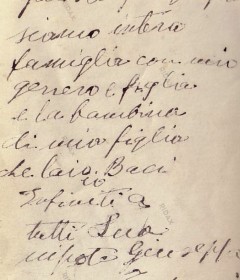 siamo intera
famiglia con mio
genero e figlia
e la bambina
di mia figlia
che
io
Baci
Infiniti a
tutti Suo
nipote Giuseppe